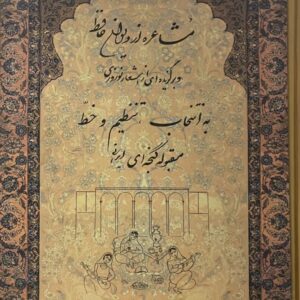 مشاعره از دیوان حافظ
و برگزیده‌ای از اشعار نوروزی
به انتخاب تنظیم و خط
مقبوله گنجه‌ای